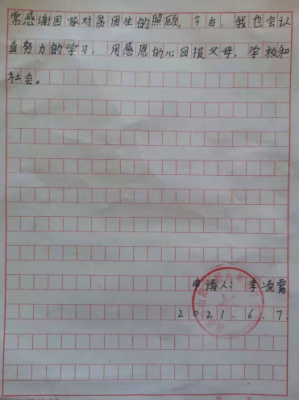 常感谢国家对贫困生的照顾，今后，我也会认
真努力的学习，用感恩的心回报父母，学校和
社会。
申请人：李凌霄
2021.6.7